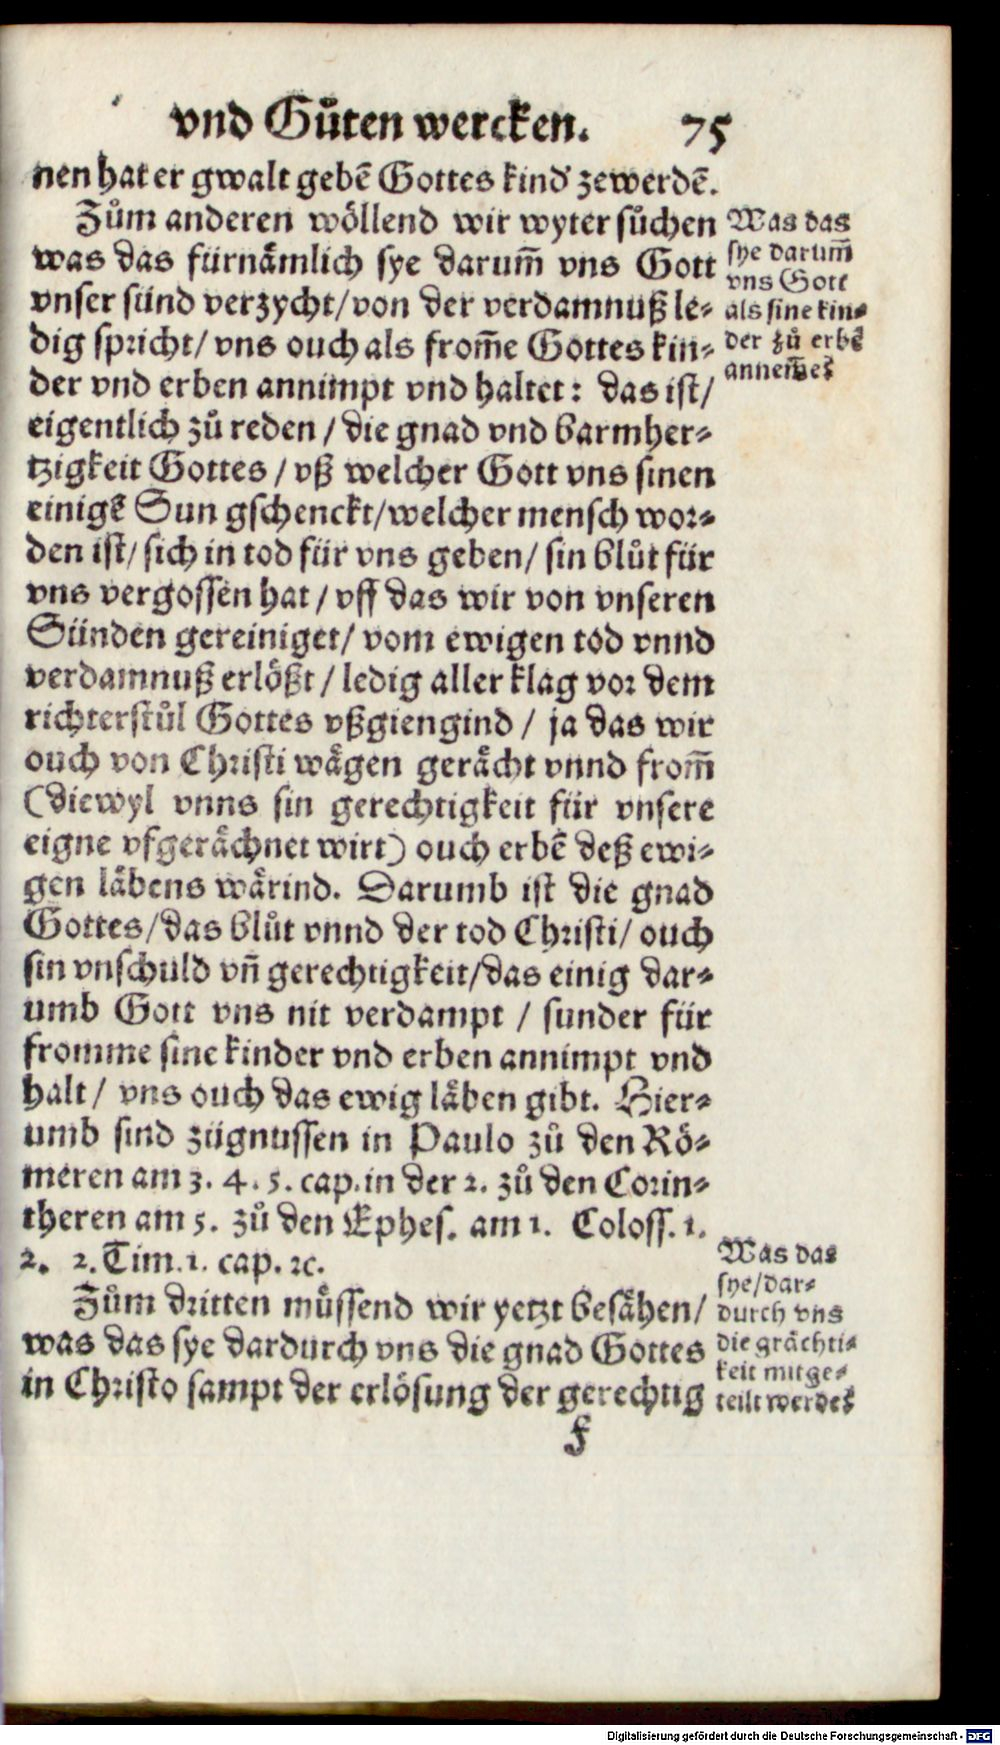 vnd Gůten wercken. 75
nen hat er gwalt gebẽ Gottes kind zewerdẽ.
Zům anderen wöllend wir wyter sůchen
was das fürnåmlich sye darum̃ vns Gott
vnser sünd verzycht/von der verdamnuß le⸗
dig spricht/ vns ouch als from̃e Gottes kin⸗
der vnd erben annimpt vnd haltet: das ist/
eigentlich zů reden / die gnad vnd barmher⸗
tzigkeit Gottes / vß welcher Gott vns sinen
einigẽ Sun gschenckt/welcher mensch wor⸗
den ist/ sich in tod für vns geben/ sin blůt für
vns vergossen hat / vff das wir von vnseren
Sünden gereiniget/ vom ewigen tod vnnd
verdamnuß erlößt / ledig aller klag vor dem
richterstůl Gottes vßgiengind / ja das wir
ouch von Christi wågen geråcht vnnd from̃
(diewyl vnns sin gerechtigkeit für vnsere
eigne vfgeråchnet wirt) ouch erbẽ deß ewi⸗
gen låbens wårind. Darumb ist die gnad
Gottes/das blůt vnnd der tod Christi/ ouch
sin vnschuld vñ gerechtigkeit/das einig dar⸗
umb Gott vns nit verdampt / sunder für
fromme sine kinder vnd erben annimpt vnd
halt/ vns ouch das ewig låben gibt. Hier⸗
umb sind zügnussen in Paulo zů den Rö⸗
meren am 3. 4. 5. cap. in der 2. zů den Corin⸗
theren am 5. zů den Ephes. am 1. Coloss. 1.
2. 2. Tim. 1. cap. ꝛc.
Zům dritten müssend wir yetzt besåhen/
was das sye dardurch vns die gnad Gottes
in Christo sampt der erlösung der gerechtig
f
Was das
sye darum̃
vns Gott
als sine kin⸗
der zů erbẽ
Was das
sye/dar⸗
durch vns
die gråchti⸗
keit mitge⸗
teilt werde
Digitalisierung gefördert durch die Deutsche Forschungsgemeinschaft - DFG